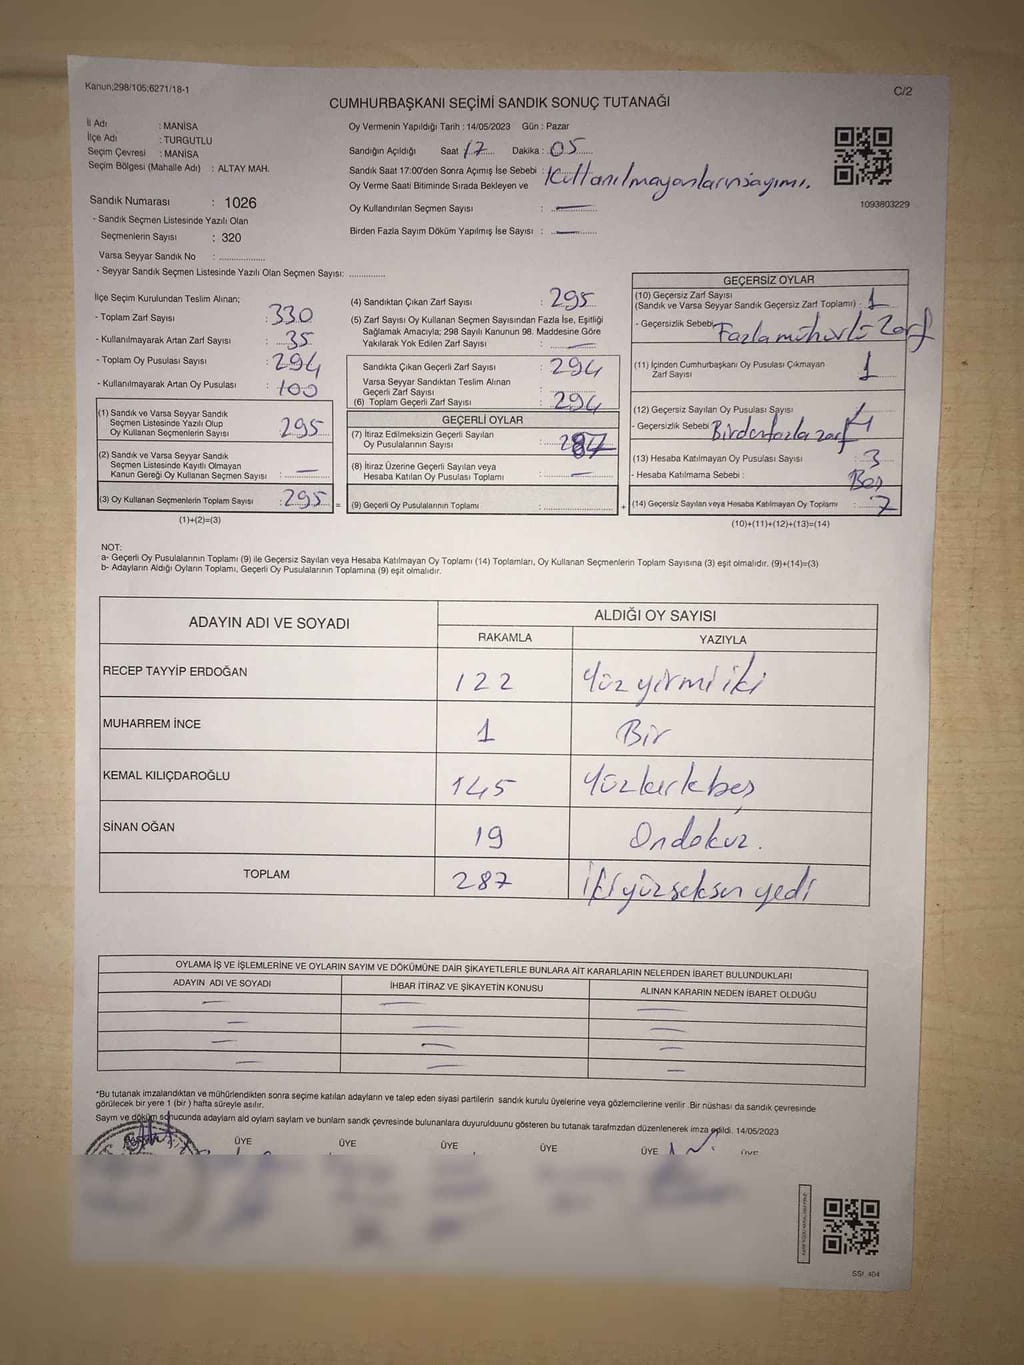 Kanun;298/105;6271/18-1
C/2
CUMHURBAŞKANI SEÇİMİ SANDIK SONUÇ TUTANAĞI
İl Adı : MANİSA
İlçe Adı : TURGUTLU
Seçim Çevresi : MANİSA
Seçim Bölgesi (Mahalle Adı) : ALTAY MAH.
Sandık Numarası : 1026
- Sandık Seçmen Listesinde Yazılı Olan
Seçmenlerin Sayısı : 320
Varsa Seyyar Sandık No : ..................
- Seyyar Sandık Seçmen Listesinde Yazılı Olan Seçmen Sayısı: ..............
Oy Vermenin Yapıldığı Tarih : 14/05/2023 Gün : Pazar
Sandığın Açıldığı Saat : 17 Dakika : 05
Sandık Saat 17:00'den Sonra Açımış İse Sebebi : Kullanılmayanların sayımı.
Oy Verme Saati Bitiminde Sırada Bekleyen ve
Oy Kullandırılan Seçmen Sayısı : —
Birden Fazla Sayım Döküm Yapılmış İse Sayısı : —
1093803229
İlçe Seçim Kurulundan Teslim Alınan;
- Toplam Zarf Sayısı : 330
- Kullanılmayarak Artan Zarf Sayısı : 35
- Toplam Oy Pusulası Sayısı : 294
- Kullanılmayarak Artan Oy Pusulası : 100
(1) Sandık ve Varsa Seyyar Sandık
Seçmen Listesinde Yazılı Olup
Oy Kullanan Seçmenlerin Sayısı : 295
(2) Sandık ve Varsa Seyyar Sandık
Seçmen Listesinde Kayıtlı Olmayan
Kanun Gereği Oy Kullanan Seçmen Sayısı : —
(3) Oy Kullanan Seçmenlerin Toplam Sayısı : 295 =
(1)+(2)=(3)
(4) Sandıktan Çıkan Zarf Sayısı : 295
(5) Zarf Sayısı Oy Kullanan Seçmen Sayısından Fazla İse, Eşitliği
Sağlamak Amacıyla; 298 Sayılı Kanunun 98. Maddesine Göre
Yakılarak Yok Edilen Zarf Sayısı : —
Sandıkta Çıkan Geçerli Zarf Sayısı : 294
Varsa Seyyar Sandıktan Teslim Alınan
Geçerli Zarf Sayısı :
(6) Toplam Geçerli Zarf Sayısı : 294
GEÇERLİ OYLAR
(7) İtiraz Edilmeksizin Geçerli Sayılan
Oy Pusulalarının Sayısı : 287
(8) İtiraz Üzerine Geçerli Sayılan veya
Hesaba Katılan Oy Pusulası Toplamı : —
(9) Geçerli Oy Pusulalarının Toplamı : .................. +
GEÇERSİZ OYLAR
(10) Geçersiz Zarf Sayısı
(Sandık ve Varsa Seyyar Sandık Geçersiz Zarf Toplamı) : 1
- Geçersizlik Sebebi : Fazla mühürlü Zarf
(11) İçinden Cumhurbaşkanı Oy Pusulası Çıkmayan
Zarf Sayısı : 1
(12) Geçersiz Sayılan Oy Pusulası Sayısı
- Geçersizlik Sebebi : Birden fazla zarf
(13) Hesaba Katılmayan Oy Pusulası Sayısı : 3
- Hesaba Katılmama Sebebi : Boş
(14) Geçersiz Sayılan veya Hesaba Katılmayan Oy Toplamı : 7
(10)+(11)+(12)+(13)=(14)
NOT:
a- Geçerli Oy Pusulalarının Toplamı (9) ile Geçersiz Sayılan veya Hesaba Katılmayan Oy Toplamı (14) Toplamları, Oy Kullanan Seçmenlerin Toplam Sayısına (3) eşit olmalıdır. (9)+(14)=(3)
b- Adayların Aldığı Oyların Toplamı, Geçerli Oy Pusulalarının Toplamına (9) eşit olmalıdır.
ADAYIN ADI VE SOYADI
ALDIĞI OY SAYISI
RAKAMLA YAZIYLA
RECEP TAYYİP ERDOĞAN 122 Yüz yirmi iki
MUHARREM İNCE 1 Bir
KEMAL KILIÇDAROĞLU 145 Yüzkırkbeş
SİNAN OĞAN 19 Ondokuz.
TOPLAM 287 İkiyüzseksen yedi
OYLAMA İŞ VE İŞLEMLERİNE VE OYLARIN SAYIM VE DÖKÜMÜNE DAİR ŞİKAYETLERLE BUNLARA AİT KARARLARIN NELERDEN İBARET BULUNDUKLARI
ADAYIN ADI VE SOYADI İHBAR İTİRAZ VE ŞİKAYETİN KONUSU ALINAN KARARIN NEDEN İBARET OLDUĞU
*Bu tutanak imzalandıktan ve mühürlendikten sonra seçime katılan adayların ve talep eden siyasi partilerin sandık kurulu üyelerine veya gözlemcilerine verilir .Bir nüshası da sandık çevresinde
görülecek bir yere 1 (bir ) hafta süreyle asılır.
Sayım ve döküm sonucunda adayların ald oyların saylam ve bunlam sandk çevresinde bulunanlara duyurulduunu gösteren bu tutanak tarafmzdan düzenlenerek imza edildi. 14/05/2023
ÜYE ÜYE ÜYE ÜYE ÜYE ÜYE
SSI_404